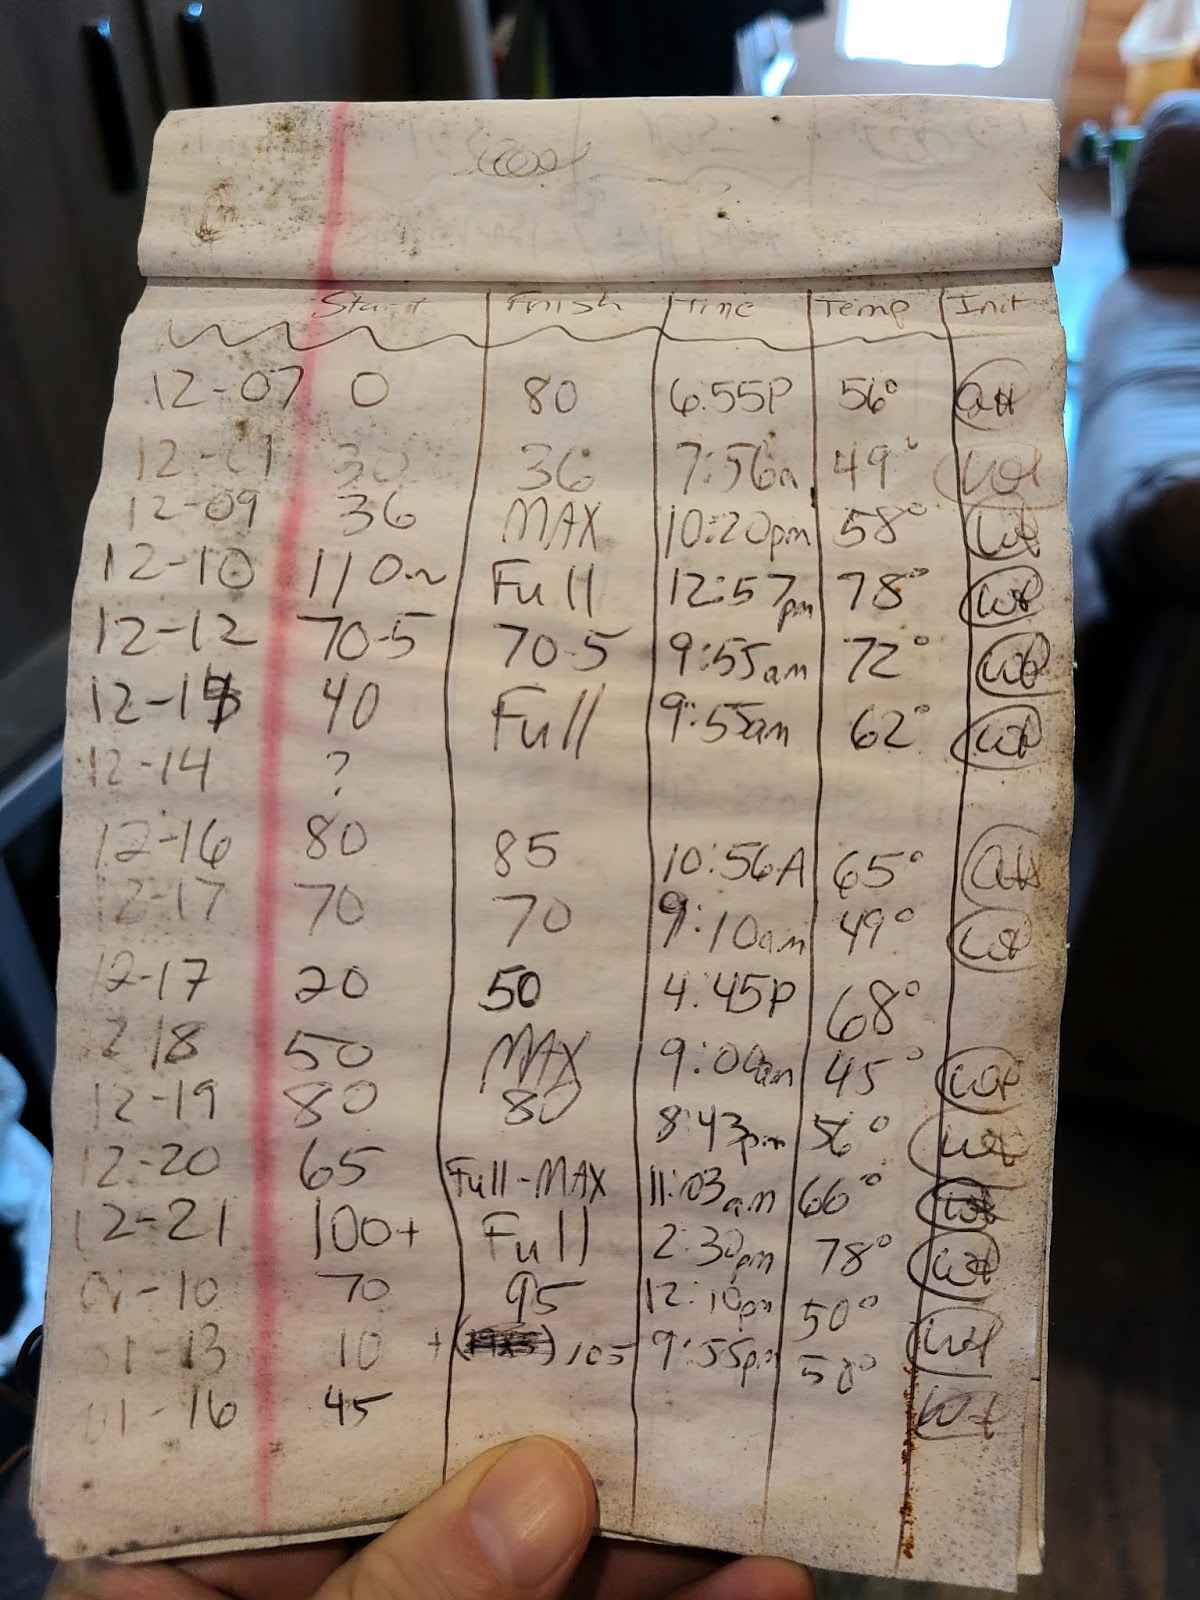 Start Finish Time Temp Init
12-07 0 80 6:55P 56° aH
36 7:56a 49°
12-09 36 MAX 10:20pm 58°
12-10 110~ Full 12:57pm 78°
12-12 70.5 70.5 9:55am 72°
40 Full 9:55am 62°
12-14 ?
12-16 80 85 10:56A 65° aH
12-17 70 70 9:10am 49°
12-17 20 50 4:45P 68°
12-18 50 MAX 9:00am 45°
12-19 80 80 8:43pm 56°
12-20 65 Full-MAX 11:03am 66°
12-21 100+ Full 2:30pm 78°
01-10 70 95 12:10pm 50°
01-13 10 + 105 9:55pm 50°
01-16 45